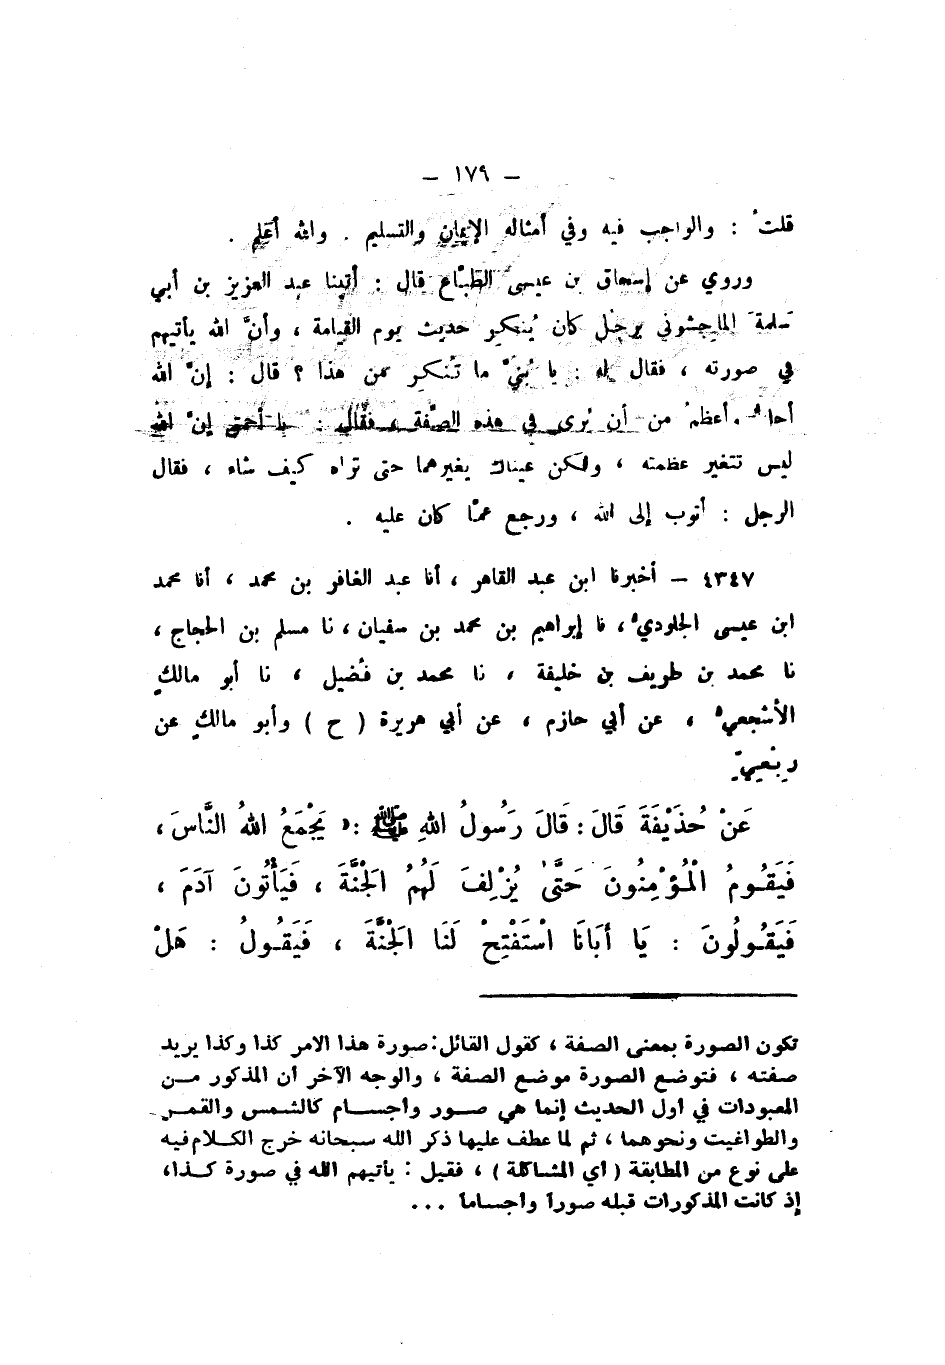 – ١٧٩ –
قلتُ : والواجب فيه وفي أمثاله الإيمان والتسليم . والله أعلم .
وروي عن إسحاق بن عيسى الطبّاع قال : أتينا عبد العزيز بن أبي
سلمةَ الماجشوني برجُل كان يُنكر حديث يوم القيامة ، وأنَّ الله يأتيهم
في صورته ، فقال له : يا بُنيَّ ما تُنكر من هذا ؟ قال : إنَّ الله
أجلُّ وأعظمُ من أن يُرى في هذه الصّفة ، فقال : يا أحمق إنَّ الله
ليس تتغير عظمته ، ولكن عيناك يغيرهما حتى تراه كيف شاء ، فقال
الرجل : أتوب إلى الله ، ورجع عمّا كان عليه .
٤٣٤٧ – أخبرنا ابن عبد القاهر ، أنا عبد الغافر بن محمد ، أنا محمد
ابن عيسى الجلوديُّ ، نا إبراهيم بن محمد بن سفيان ، نا مسلم بن الحجاج ،
نا محمد بن طريف بن خليفة ، نا محمد بن فُضيل ، نا أبو مالكٍ
الأشجعيُّ ، عن أبي حازم ، عن أبي هريرة ( ح ) وأبو مالكٍ عن
رِبْعيٍّ
عَنْ حُذَيْفَةَ قَالَ : قَالَ رَسُولُ اللهِ ﷺ : « يَجْمَعُ اللهُ النَّاسَ ،
فَيَقُومُ الْمُؤْمِنُونَ حَتَّىٰ يُزْلِفَ لَهُمُ الجَنَّةَ ، فَيَأْتُونَ آدَمَ ،
فَيَقُولُونَ : يَا أَبَانَا اسْتَفْتِحْ لَنَا الجَنَّةَ ، فَيَقُولُ : هَلْ
تكون الصورة بمعنى الصفة ، كقول القائل : صورة هذا الامر كذا وكذا يريد
صفته ، فتوضع الصورة موضع الصفة ، والوجه الآخر أن المذكور من
المعبودات في أول الحديث إنما هي صور وأجسام كالشمس والقمر
والطواغيت ونحوهما ، ثم لما عطف عليها ذكر الله سبحانه خرج الكلام فيه
على نوع من المطابقة ( أي المشاكلة ) ، فقيل : يأتيهم الله في صورة كذا ،
إذ كانت المذكورات قبله صوراً وأجساماً ...